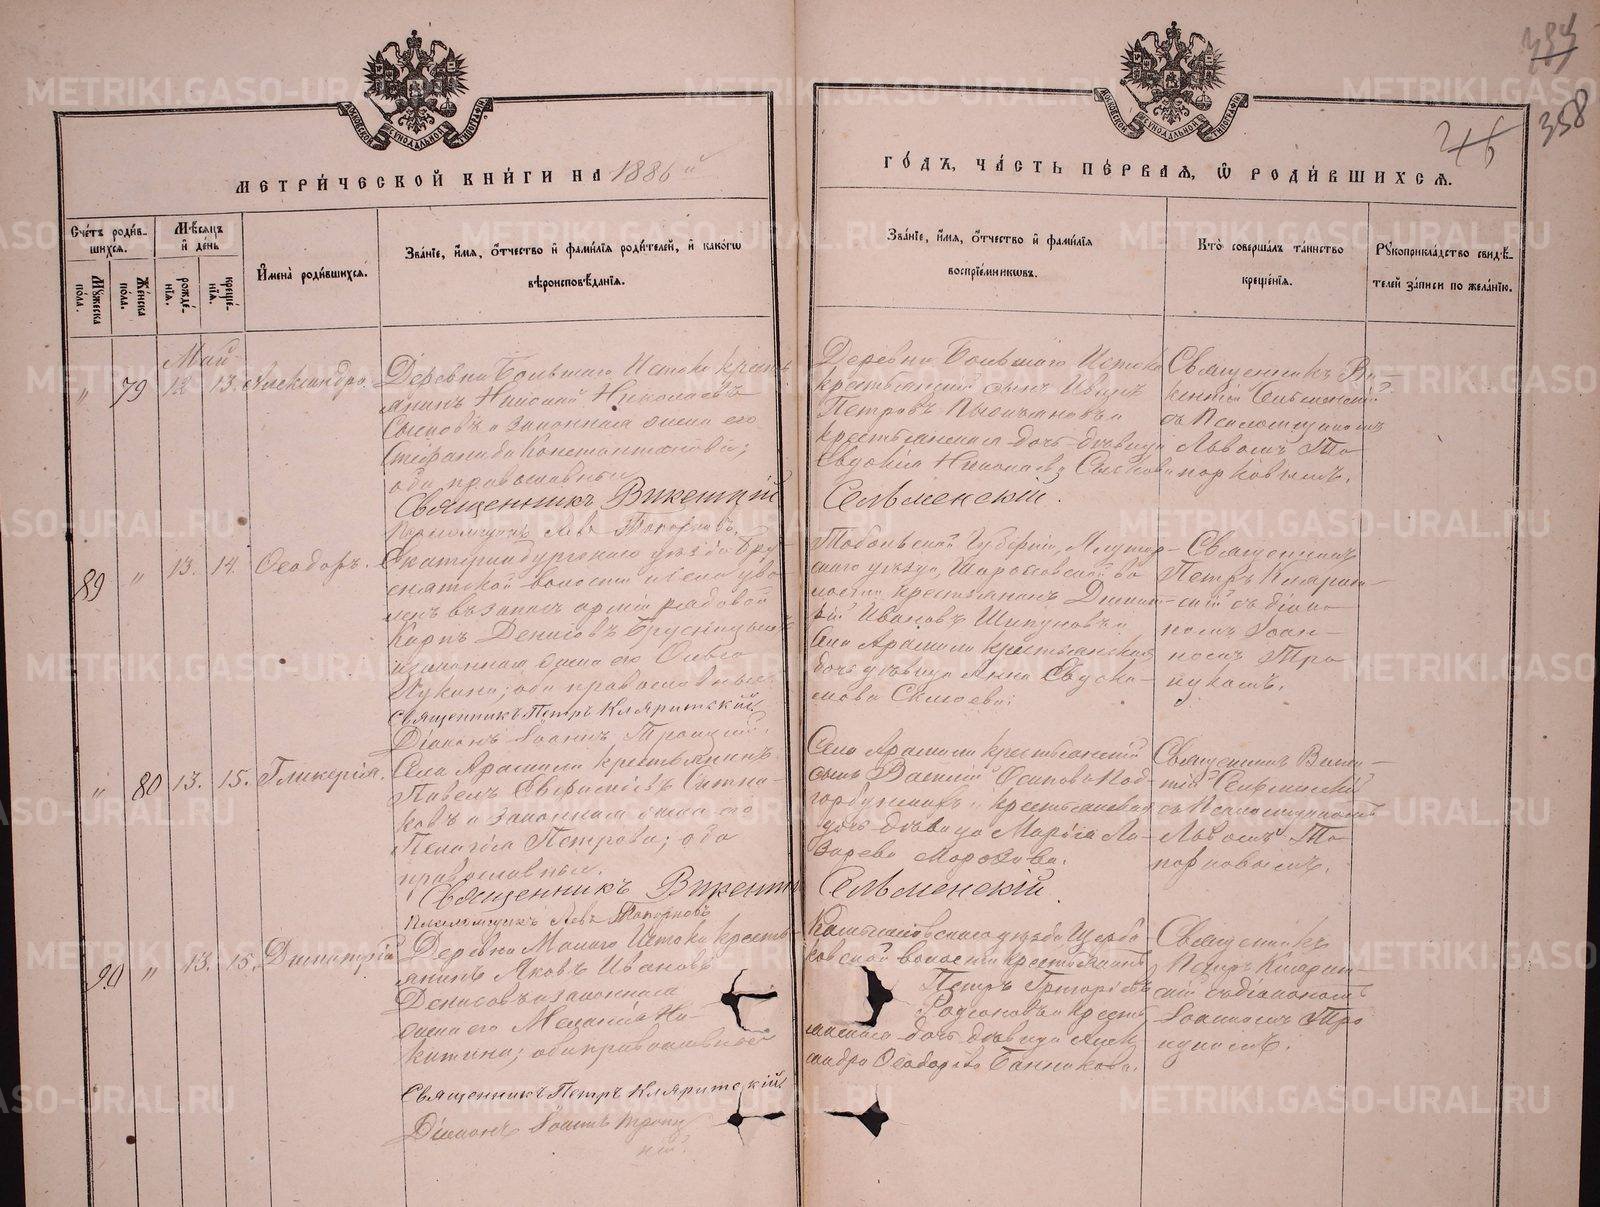 МЕТРИ́ЧЕСКОЙ КНИ́ГИ НА 1886й
ГО́ДЪ, ЧА́СТЬ ПЕ́РВАЯ, Ѡ РОДИ́ВШИХСЯ.
358
Сче́тъ роди́в-
шихся.
Му́жеска
пола.
Же́нска
по́ла.
Мѣ́сяцъ
и де́нь
рожде́-
нїя.
креще́-
нїя.
И҆мена̀ роди́вшихся.
Зва́нїе, и҆́мя, ѻ҆́тчество и҆ фами́лїя роди́телей, и҆ како́гѡ
вѣроисповѣ́данїя.
Зва́нїе, и҆́мя, ѻ҆́тчество и҆ фами́лїя
воспрїе́мникѡвъ.
Кто̀ соверша́лъ та́инство
креще́нїя.
Рꙋкоприкла́дство свидѣ́-
телей за́писи по жела́нїю.
Май
" 79 12 13. Александра.
Деревни Большаго Истока кресть-
янинъ Николай Николаевъ
и законная жена его
Стефанида Константинова;
оба православные
Священникъ Викентій
Псаломщикъ Левъ Топорковъ.
Деревни Большаго Истока
крестьянскій сынъ Иванъ
Петровъ
крестьянская дочь девица
Евдокія Николаева
Сельменскій.
Священникъ Ви-
кентій Сельменскій
съ Псаломщикомъ
Львомъ То-
порковымъ.
89 " 13. 14. Ѳеодоръ.
Екатеринбургскаго уѣзда Бру-
снятской волости и села уво-
ленъ въ запасъ арміи рядовой
Карпъ Денисовъ Брусницынъ
и законная жена его Ольга
Лукина; оба православные.
Священникъ Петръ Кляритскій
Діаконъ Іоаннъ Троицкій.
Тобольской Губерніи, Ялутор-
скаго уѣзда, во-
лости, крестьянинъ Димит-
рій Ивановъ Шипуновъ и
Села Арамили крестьянская
дочь дѣвица Анна Евдоки-
мова
Священникъ
Петръ Клярит-
скій съ діако-
номъ Іоан-
номъ Тро-
ицкимъ.
" 80 13. 15. Гликерія.
Села Арамили крестьянинъ
Павелъ Евфиміевъ Ситни-
ковъ и законная жена его
Пелагія Петрова; оба
православные.
Священникъ Викентій
Псаломщикъ Левъ Топорковъ
Села Арамили крестьянскій
сынъ Василій Осиповъ Под-
горбунскихъ и крестьянская
дочь дѣвица Марія Ла-
зарева Морозова.
Сельменскій.
Священникъ Викен-
тій Сельменскій
съ Псаломщикомъ
Львомъ То-
порковымъ.
90 " 13. 15. Димитрій
Деревни Малаго Истока кресть-
янинъ Яковъ Ивановъ
Денисовъ и законная
жена его Меланія Ни-
китина; оба православные
Священникъ Петръ Кляритскій
Діаконъ Іоаннъ Троиц
кій.
Камышловскаго уѣзда Щерба-
ковской волости крестьянинъ
Петръ Григорьевъ
Родіоновъ и кресть-
янская дочь дѣвица Алек-
сандра Ѳеодорова Банникова.
Священникъ
Петръ Клярит-
скій съ діакономъ
Іоанномъ Тро-
ицкимъ.
METRIKI.GASO-URAL.RU